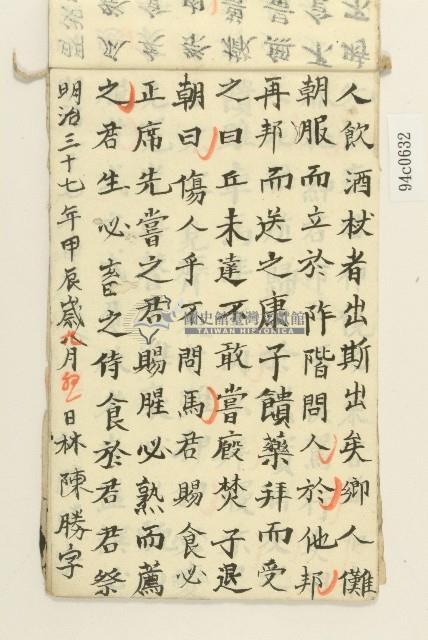 人飲酒杖者出斯出矣鄉人儺
朝服而立於阼階問人於他邦
再邦而送之康子饋藥拜而受
之曰丘未達不敢嘗廄焚子退
朝曰傷人乎不問馬君賜食必
正席先嘗之君賜腥必熟而薦
之君生必畜之侍食於君君祭
明治三十七年甲辰歲九月日林陳勝字
94c0632
國史館臺灣文獻館
TAIWAN HISTORICA